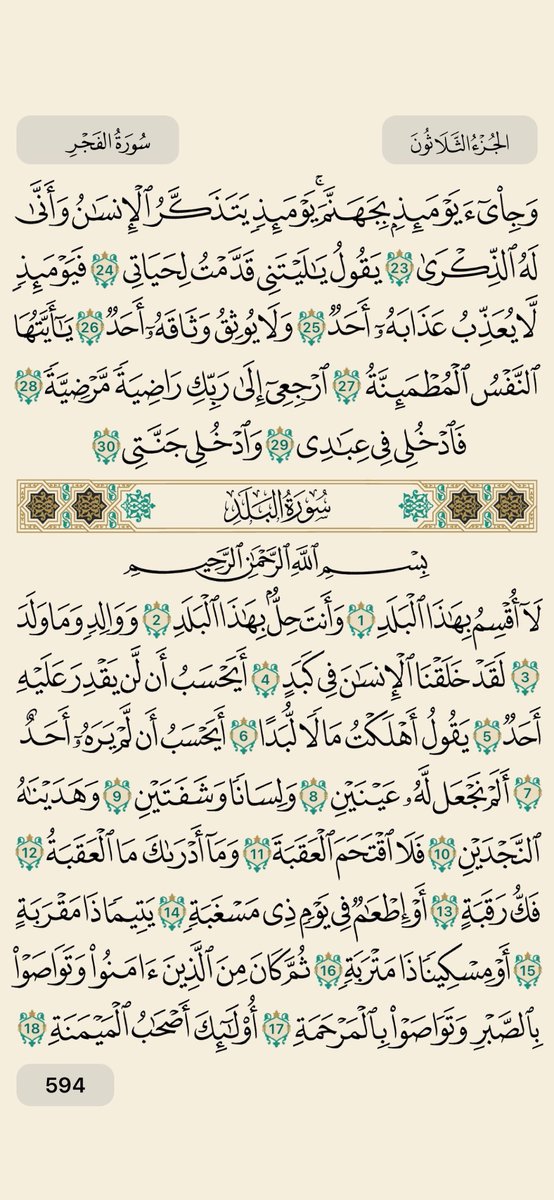 الجُزْءُ الثَّلَاثُونَ
سُورَةُ الفَجْرِ
وَجِاْىٓءَ يَوْمَئِذِۭ بِجَهَنَّمَۚ يَوْمَئِذٍ يَتَذَكَّرُ ٱلْإِنسَٰنُ وَأَنَّىٰ
لَهُ ٱلذِّكْرَىٰ 23 يَقُولُ يَٰلَيْتَنِى قَدَّمْتُ لِحَيَاتِى 24 فَيَوْمَئِذٍ
لَّا يُعَذِّبُ عَذَابَهُۥٓ أَحَدٌ 25 وَلَا يُوثِقُ وَثَاقَهُۥٓ أَحَدٌ 26 يَٰٓأَيَّتُهَا
ٱلنَّفْسُ ٱلْمُطْمَئِنَّةُ 27 ٱرْجِعِىٓ إِلَىٰ رَبِّكِ رَاضِيَةً مَّرْضِيَّةً 28
فَٱدْخُلِى فِى عِبَٰدِى 29 وَٱدْخُلِى جَنَّتِى 30
سُورَةُ البَلَدِ
بِسْمِ ٱللَّهِ ٱلرَّحْمَٰنِ ٱلرَّحِيمِ
لَآ أُقْسِمُ بِهَٰذَا ٱلْبَلَدِ 1 وَأَنتَ حِلٌّۢ بِهَٰذَا ٱلْبَلَدِ 2 وَوَالِدٍ وَمَا وَلَدَ
3 لَقَدْ خَلَقْنَا ٱلْإِنسَٰنَ فِى كَبَدٍ 4 أَيَحْسَبُ أَن لَّن يَقْدِرَ عَلَيْهِ
أَحَدٌ 5 يَقُولُ أَهْلَكْتُ مَالًا لُّبَدًا 6 أَيَحْسَبُ أَن لَّمْ يَرَهُۥٓ أَحَدٌ
7 أَلَمْ نَجْعَل لَّهُۥ عَيْنَيْنِ 8 وَلِسَانًا وَشَفَتَيْنِ 9 وَهَدَيْنَٰهُ
ٱلنَّجْدَيْنِ 10 فَلَا ٱقْتَحَمَ ٱلْعَقَبَةَ 11 وَمَآ أَدْرَىٰكَ مَا ٱلْعَقَبَةُ 12
فَكُّ رَقَبَةٍ 13 أَوْ إِطْعَٰمٌ فِى يَوْمٍ ذِى مَسْغَبَةٍ 14 يَتِيمًا ذَا مَقْرَبَةٍ
15 أَوْ مِسْكِينًا ذَا مَتْرَبَةٍ 16 ثُمَّ كَانَ مِنَ ٱلَّذِينَ ءَامَنُوا۟ وَتَوَاصَوْا۟
بِٱلصَّبْرِ وَتَوَاصَوْا۟ بِٱلْمَرْحَمَةِ 17 أُو۟لَٰٓئِكَ أَصْحَٰبُ ٱلْمَيْمَنَةِ 18
594